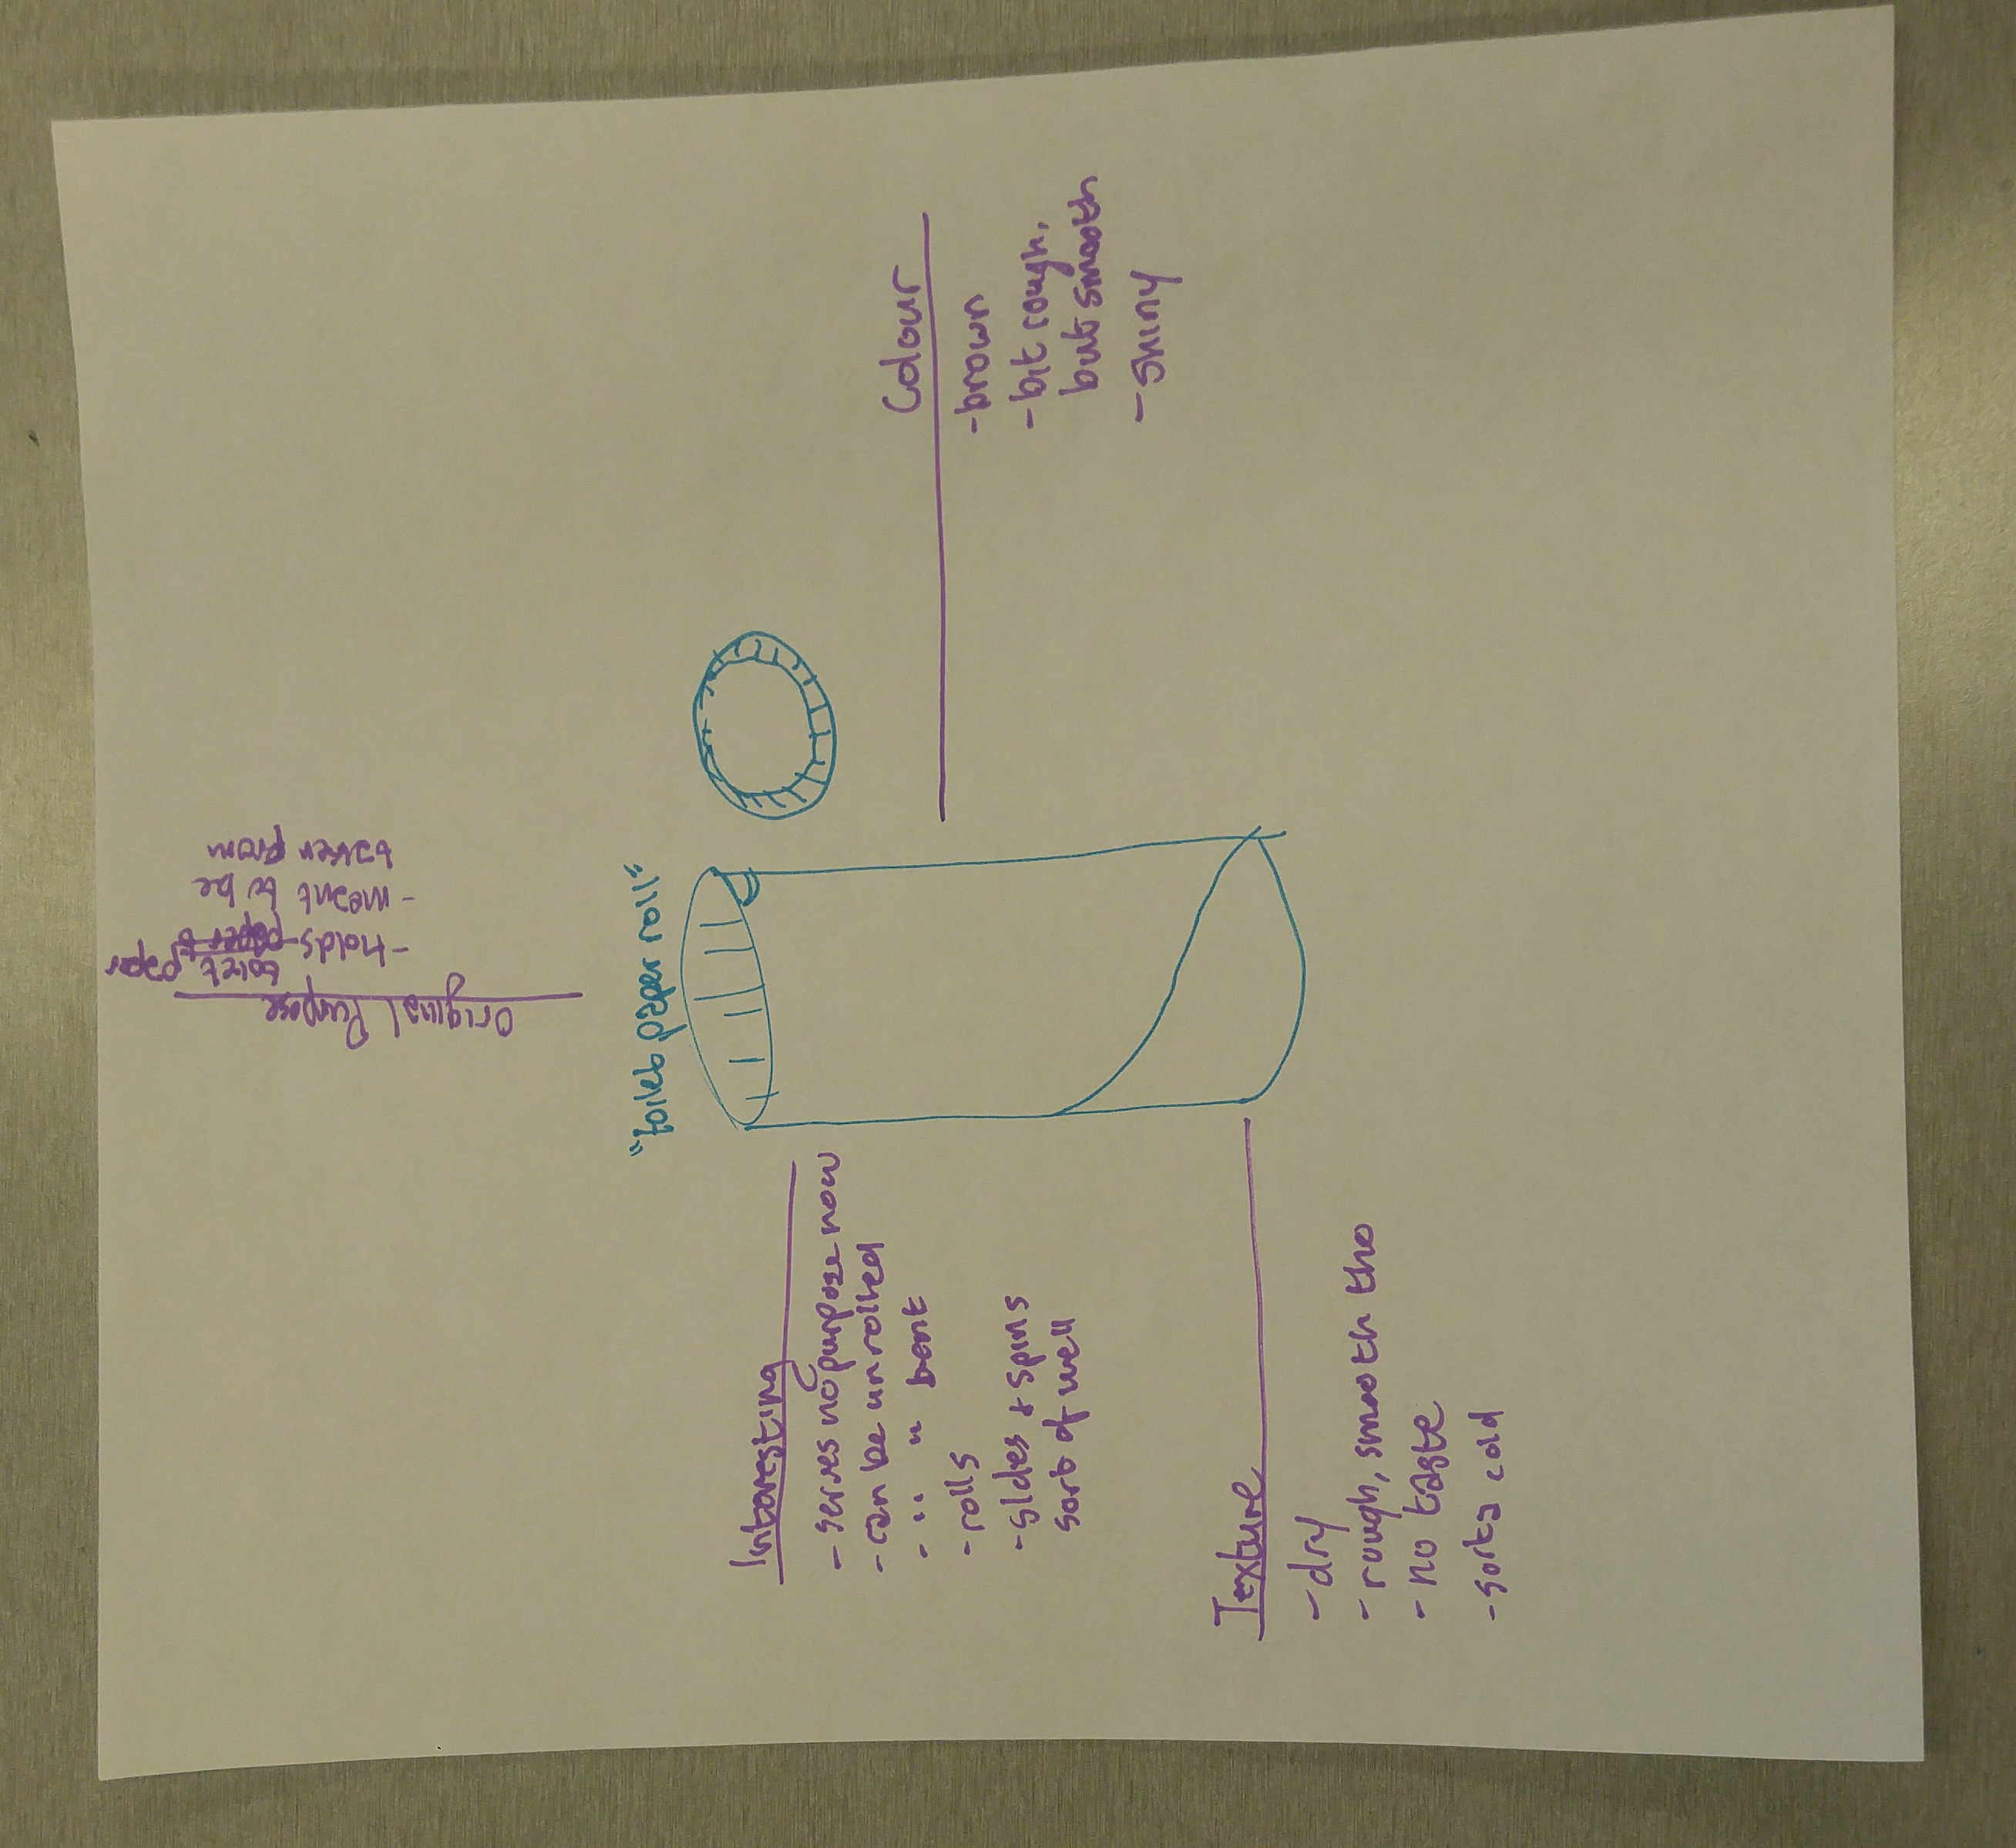 Original Purpose
toilet paper
- holds
- meant to be
taken from
"toilet paper roll"
Interesting
- serves no purpose now
- can be unrolled
- " " bent
- rolls
- slides & spins
sort of well
Colour
- brown
- bit rough,
but smooth
- shiny
Texture
- dry
- rough, smooth tho
- no taste
- sorta cold